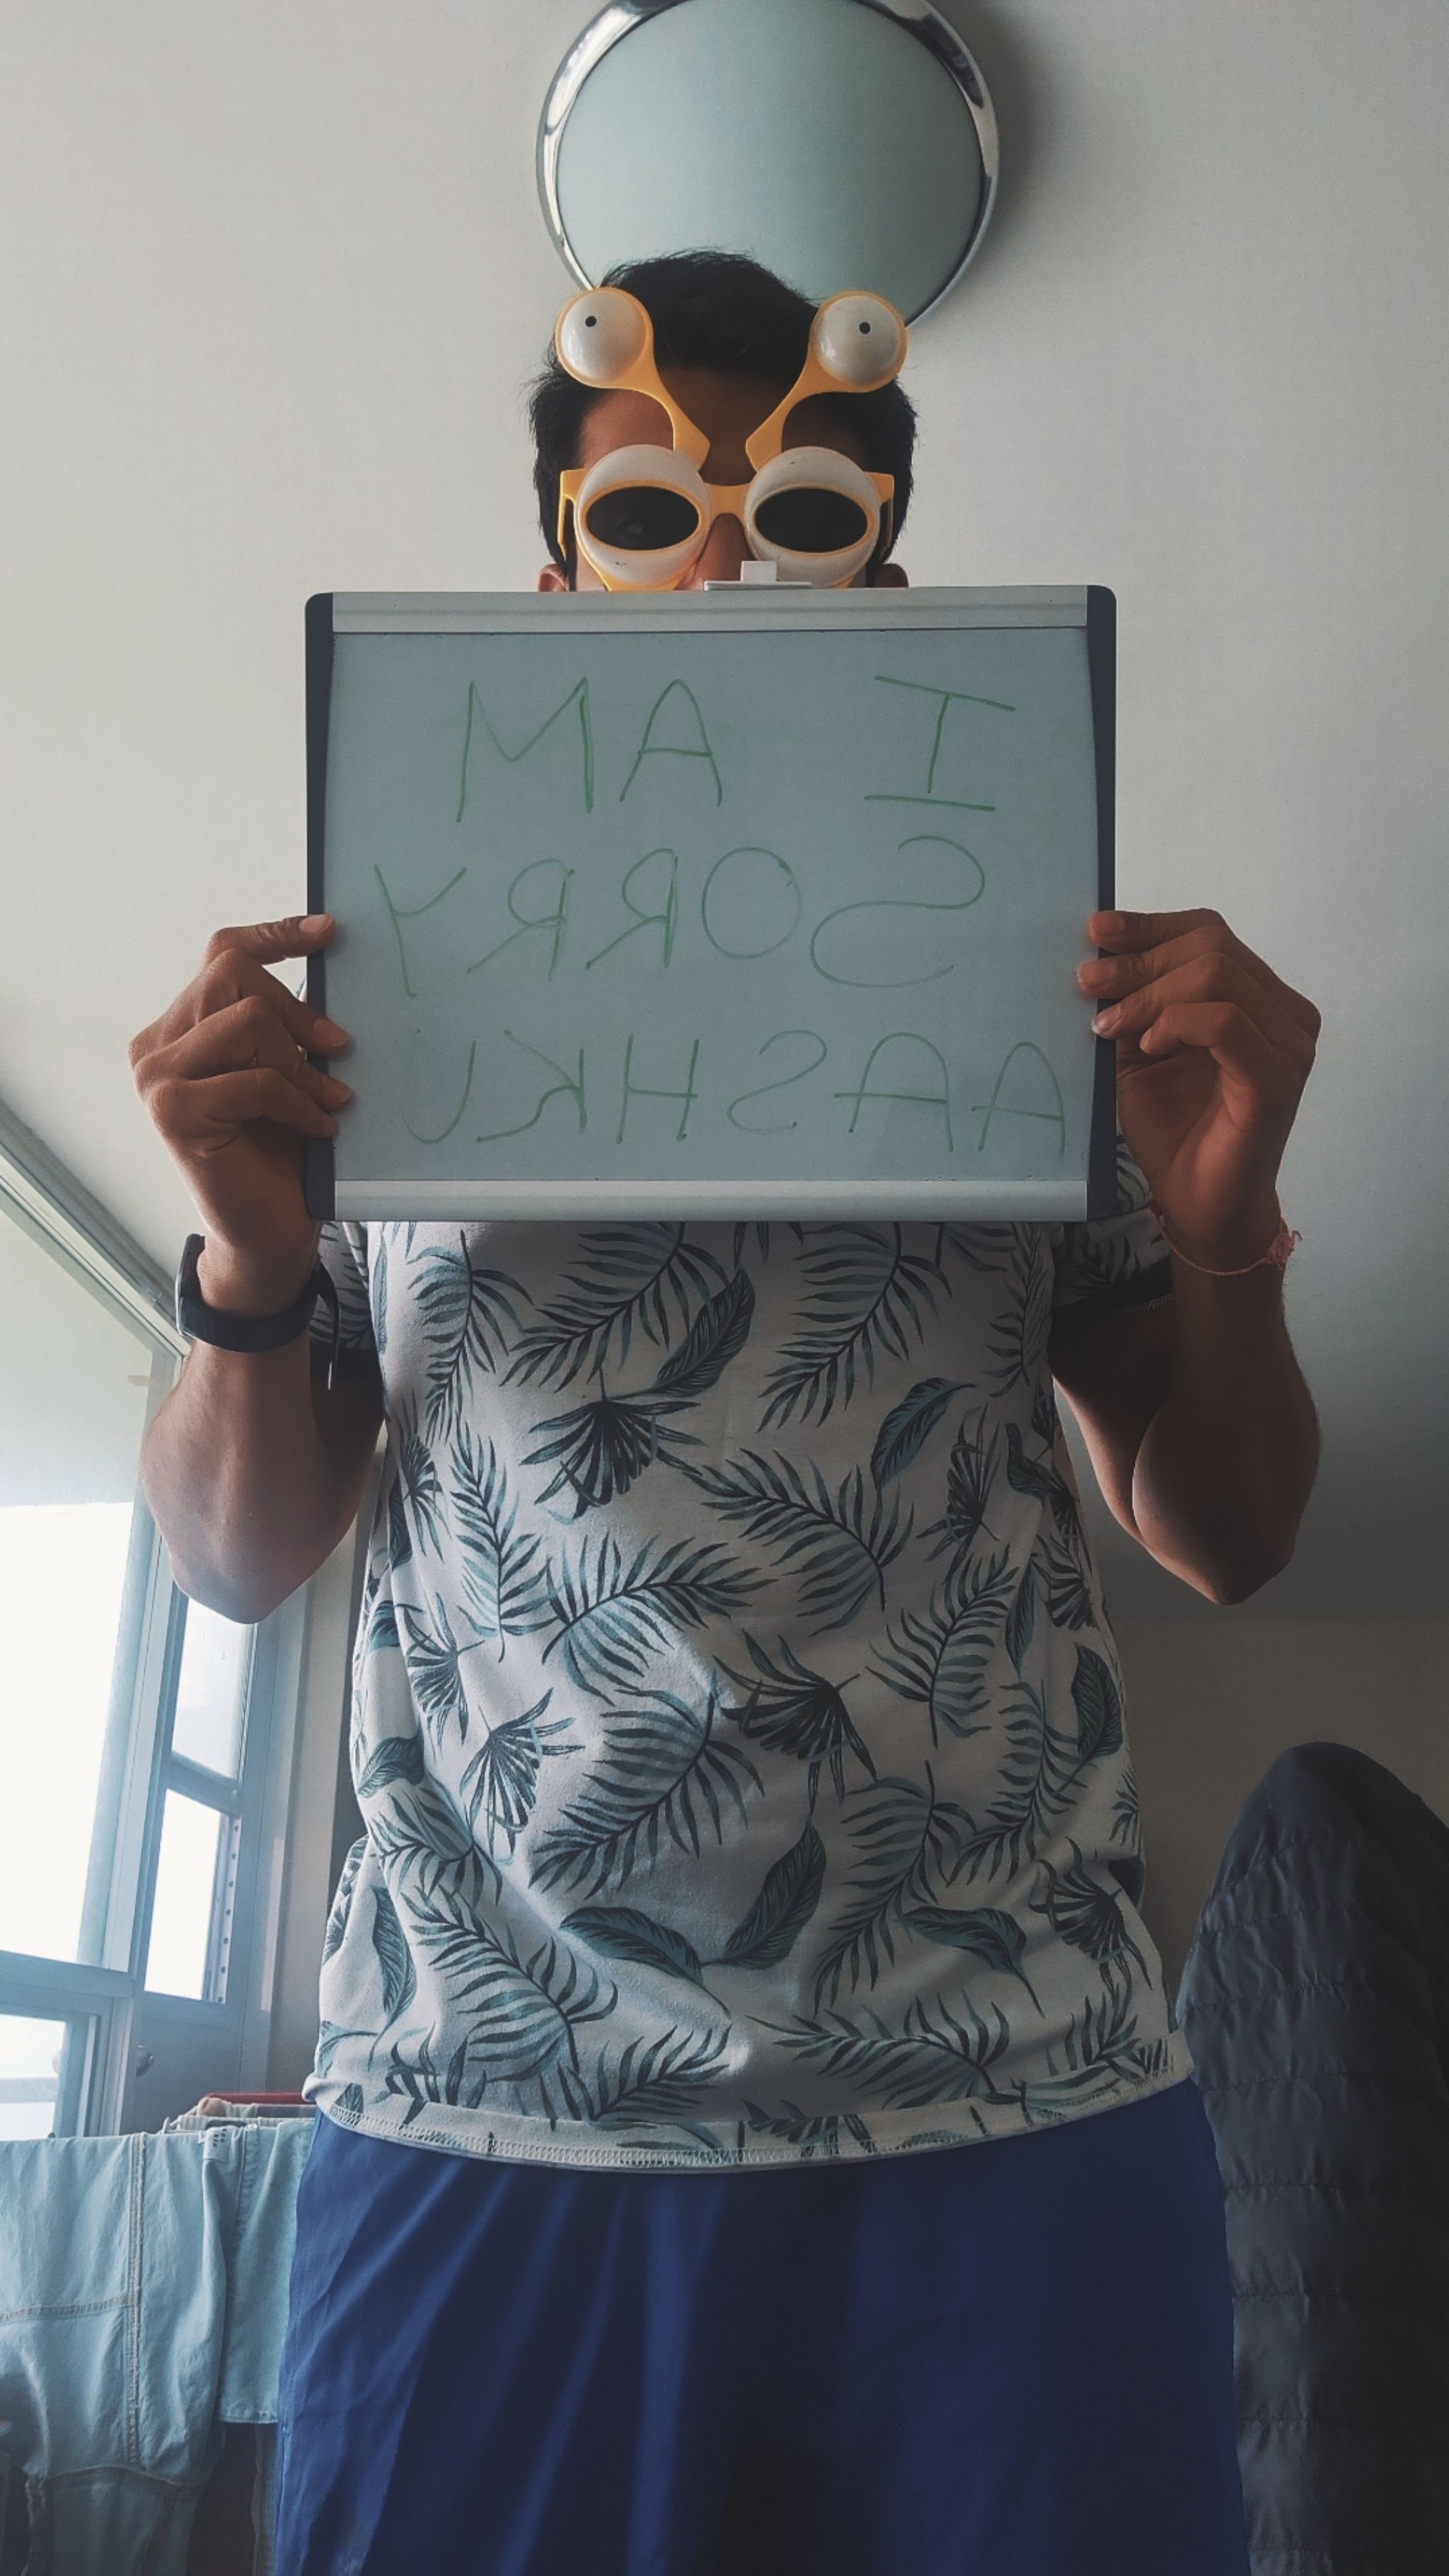 I AM
SORRY
AASHKU